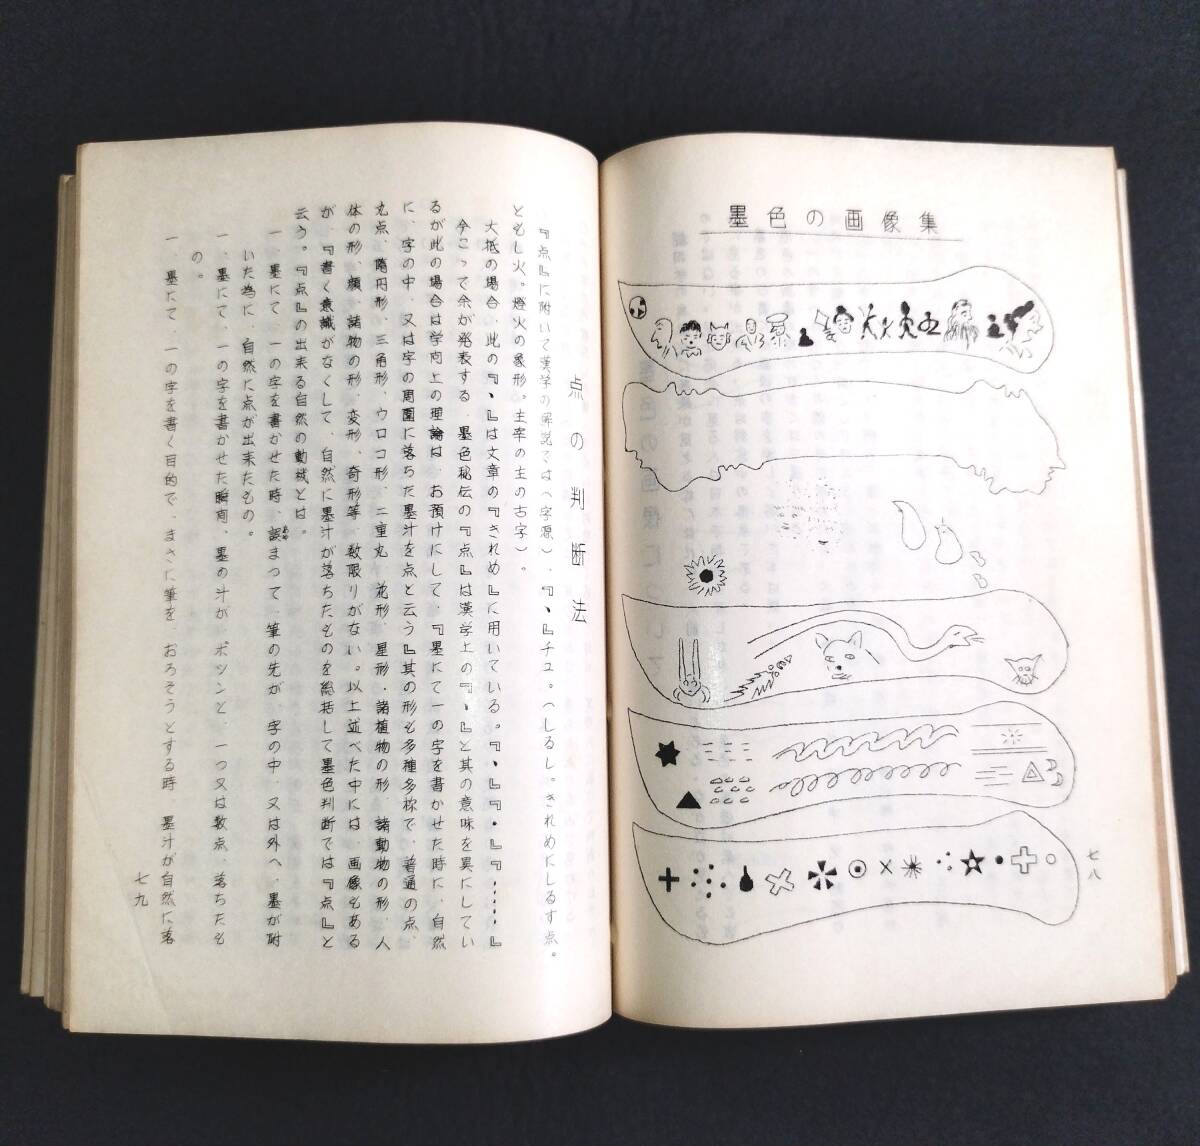 墨色の画像集
七八
点の判断法
『点』に附いて漢学の解説では(字源)、『丶』チュ。(しるし。きれめにしるす点。
ともし火。燈火の象形。主宰の主の古字)。
大抵の場合、此の『丶』は文章の『きれめ』に用いている。『、』『・』『……』
今こゝって余が発表する、墨色秘伝の『点』は漢学上の『丶』と其の意味を異にしてい
るが此の場合は学向上の理論は、お預けにして、『墨にて一の字を書かせた時に、自然
に、字の中、又は字の周囲に落ちた墨汁を点と云う』其の形も多種多称で、普通の点、
丸点、隋円形、三角形、ウロコ形、二重丸、花形、星形・諸植物の形、諸動物の形、人
体の形、顔、諸物の形、変形、奇形等、数限りがない。以上述べた中には、画像もある
が、『書く意識がなくして、自然に墨汁が落ちたものを総括して墨色判断では『点』と
云う。『点』の出来る自然の動機とは。
一、墨にて、一の字を書かせた時、誤まって、筆の先が、字の中、又は外へ、墨が附
いた為に、自然に点が出来たもの。
一、墨にて、一の字を書かせた瞬間、墨の汁が、ポツンと、一つ又は数点、落ちたも
の。
一、墨にて、一の字を書く目的で、まさに筆を、おろそうとする時、墨汁が自然に落
七九